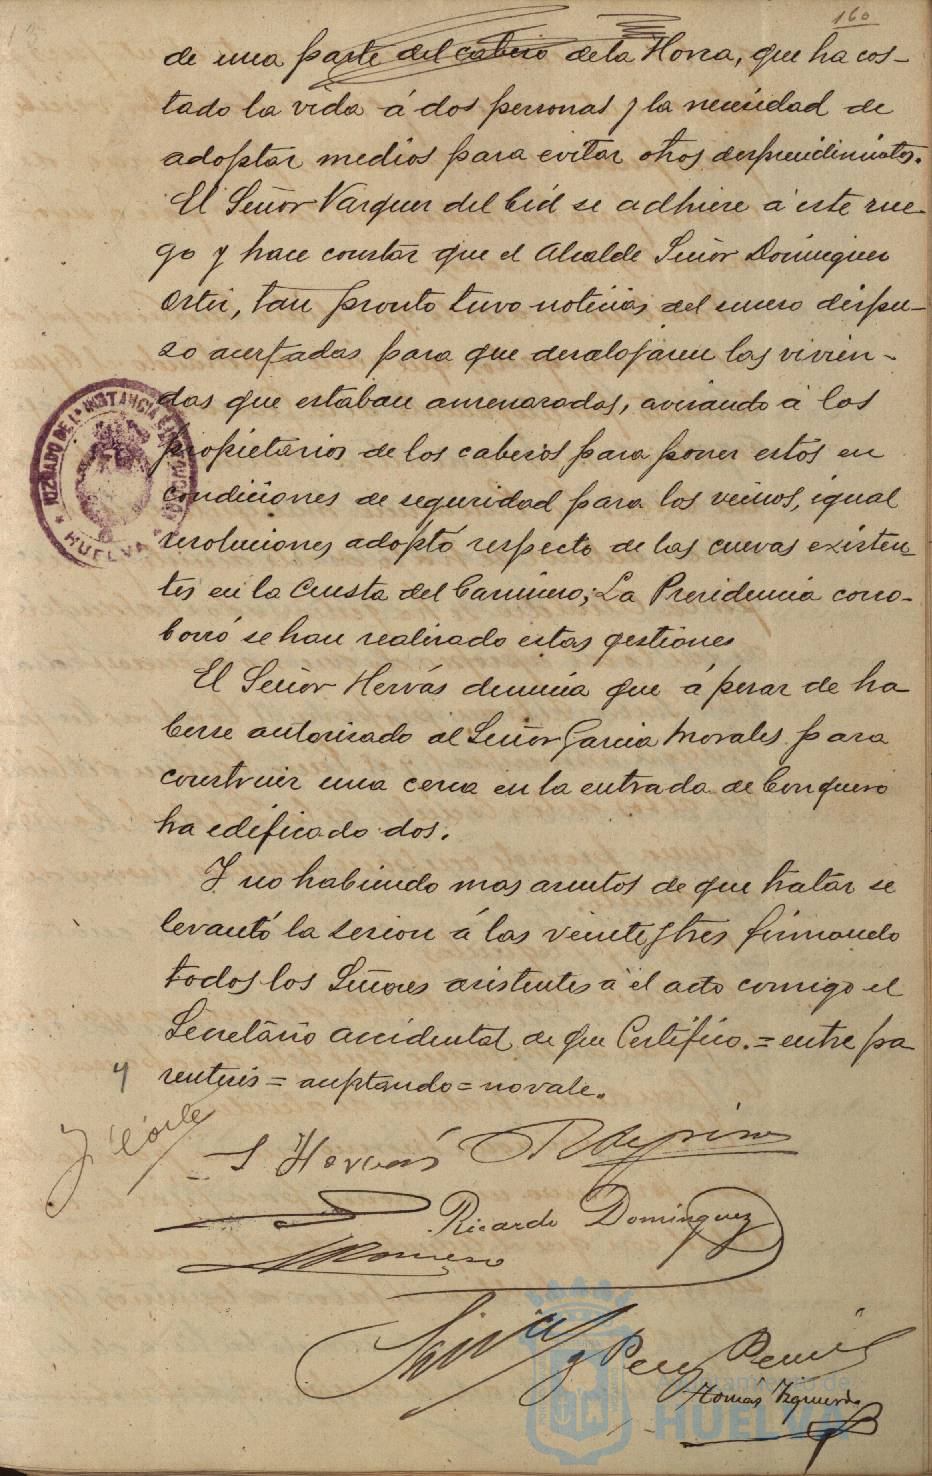 160
de una parte del cabezo de la Horca, que ha cos-
tado la vida á dos personas y la necesidad de
adoptar medios para evitar otros desprendimientos.
El Señor Vazquez del Cid se adhiere á este rue-
go y hace constar que el Alcalde Señor Dominguez
Ortiz, tan pronto tuvo noticias del suceso dispu-
so acertadas para que desalojaren las vivien-
das que estaban amenazadas, avisando á los
propietarios de los cabezos para poner estos en
condiciones de seguridad para los vecinos, igual
resoluciones adoptó respecto de las cuevas existen-
tes en la Cuesta del Carnicero; La Presidencia corro-
borró se han realizado estas gestiones
El Señor Hervás denuncia que á pesar de ha-
berse autorizado al Señor Garcia Morales para
construir una cerca en la entrada de Conquero
ha edificado dos.
Y no habiendo mas asuntos de que tratar se
levantó la sesion á las veinte y tres firmando
todos los Señores asistentes á el acto comigo el
Secretario accidental de que Certifico. = entre pa
rentesis = aceptando = no vale.
JUZGADO DE 1ª INSTANCIA E INSTRUCCION
HUELVA
S Hervás
Ricardo Dominguez
Romero
Tomás Izquierdo
Ayuntamiento de
HUELVA